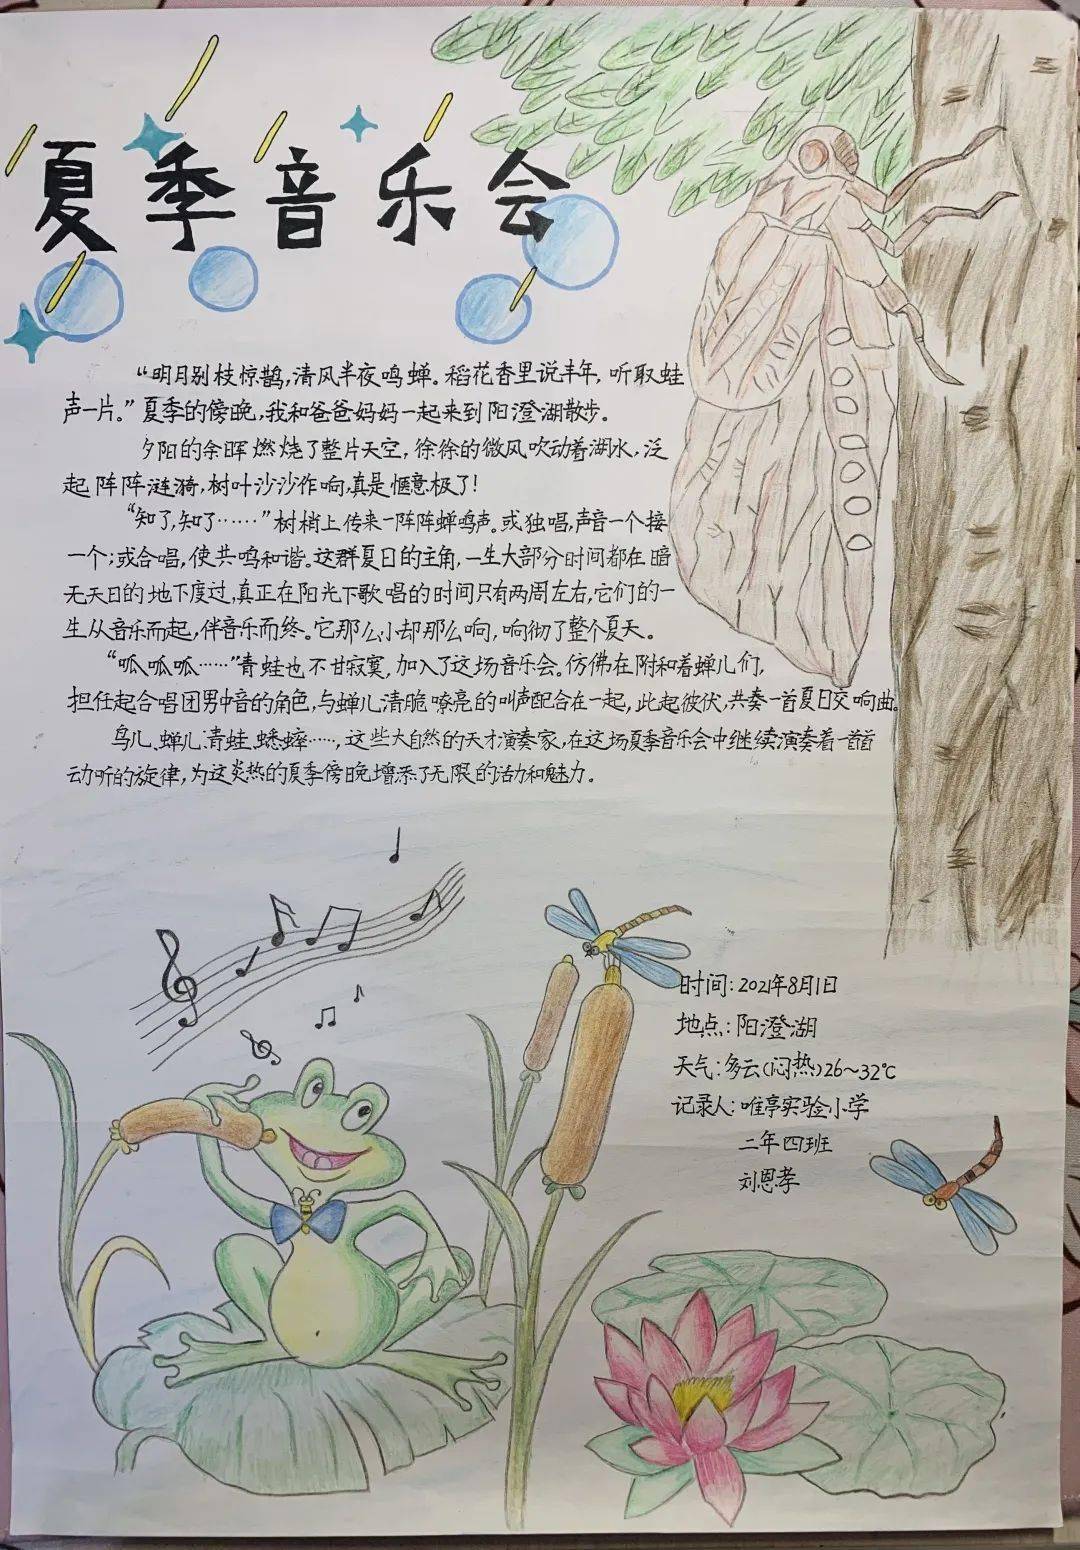 夏季音乐会
“明月别枝惊鹊，清风半夜鸣蝉。稻花香里说丰年，听取蛙
声一片。”夏季的傍晚，我和爸爸妈妈一起来到阳澄湖散步。
夕阳的余晖燃烧了整片天空，徐徐的微风吹动着湖水，泛
起阵阵涟漪，树叶沙沙作响，真是惬意极了！
“知了，知了……”树梢上传来一阵阵蝉鸣声。或独唱，声音一个接
一个；或合唱，使共鸣和谐。这群夏日的主角，一生大部分时间都在暗
无天日的地下度过，真正在阳光下歌唱的时间只有两周左右，它们的一
生从音乐而起，伴音乐而终。它那么小却那么响，响彻了整个夏天。
“呱呱呱……”青蛙也不甘寂寞，加入了这场音乐会。仿佛在附和着蝉儿们，
担任起合唱团男中音的角色，与蝉儿清脆嘹亮的叫声配合在一起，此起彼伏，共奏一首夏日交响曲。
鸟儿、蝉儿、青蛙、蟋蟀……，这些大自然的天才演奏家，在这场夏季音乐会中继续演奏着一首首
动听的旋律，为这炎热的夏季傍晚增添了无限的活力和魅力。
时间：2021年8月1日
地点：阳澄湖
天气：多云（闷热）26～32℃
记录人：唯亭实验小学
二年四班
刘恩孝